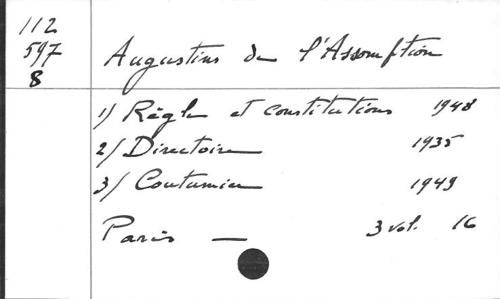 112
597
8
Augustins de l'Assomption
1) Règle et constitutions 1948
2) Directoire 1935
3) Coutumier 1949
Paris — 3 vol. 16